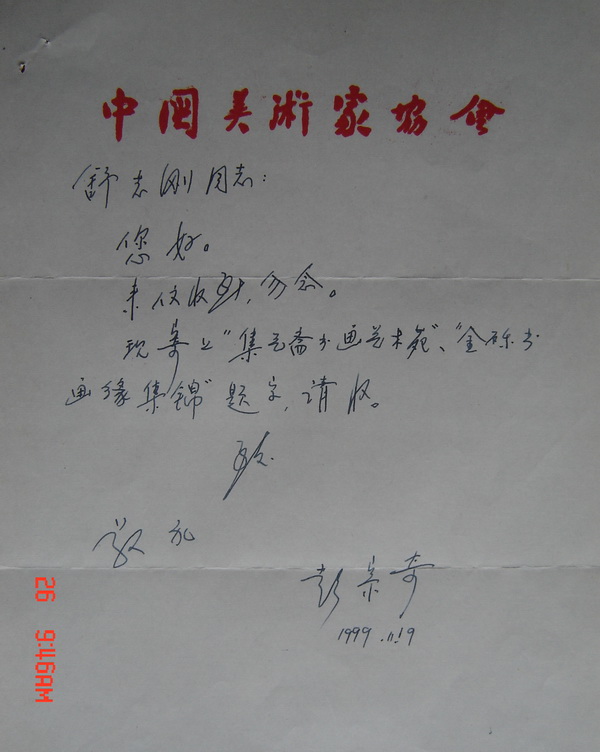 中国美術家协会
舒志刚同志：
您好。
来信收到，勿念。
现寄上“集艺斋书画艺术苑”、“金砾书
画缘集锦”题字，请收。
致
敬礼
彭
奇
1999.11.19
26 9:46AM